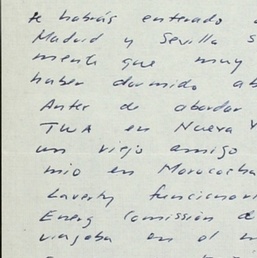 te habrás enterado
Madrid y Sevilla s
mente que muy
haber dormido ab
Antes de abordar
TWA en Nueva Y
un viejo amigo
mio en Morococha
Laverty funcionari
Energ Comission de
viajaba en el m